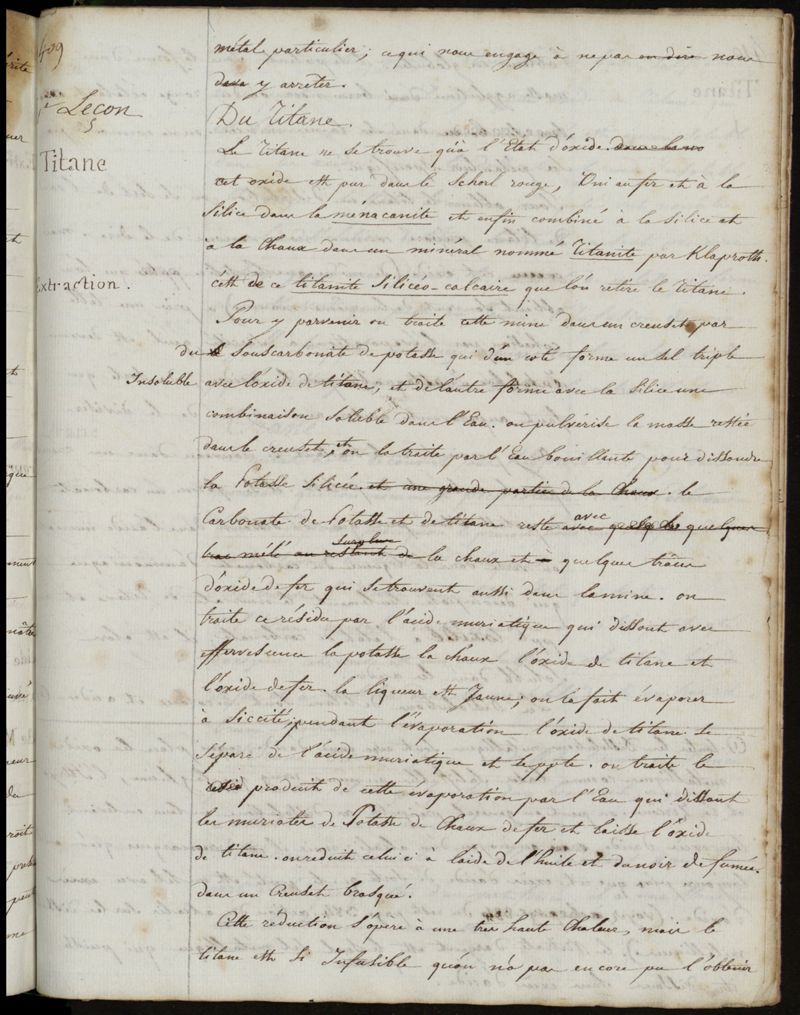 409
métal particulier; ce qui nous engage à ne pas en dire nous
dava y arrêter.
Leçon
Du Titane.
Titane
Le Titane ne se trouve qu'à l'Etat d'oxide. dans la no
cet oxide est pur dans le Schorl rouge, Uni au fer et à la
Silice dans la ménacanite et enfin combiné à la Silice et
à la Chaux dans un minéral nommé Titanite par Klaproth.
Extraction.
c'est de ce titanite Siliceo-calcaire que l'on retire le Titane.
Pour y parvenir on traite cette mine dans un creuset par
du le Souscarbonate de potasse qui d'un coté forme un sel triple
Insoluble avec l'oxide de titane, et de l'autre forme avec la Silice une
combinaison Soluble dans l'Eau. on pulvérise la masse restée
dans le creuset, et on la traite par l'Eau bouillante pour dissoudre
la Potasse Silicée et une grande partie de la Chaux. le
Carbonate de Potasse et de titane reste avec avec quelq les quelques
tras mêlé au restant surplus de la chaux et à quelques traces
d'oxide de fer qui se trouvent aussi dans la mine. on
traite ce résidu par l'acide muriatique qui dissout avec
effervescence la potasse la chaux l'oxide de titane et
l'oxide de fer. la liqueur est Jaune; on la fait évaporer
à Siccité; pendant l'évaporation l'oxide de titane se
Sépare de l'acide muriatique et se ppte. on traite le
produit de cette évaporation par l'Eau qui dissout
les muriates de Potasse de Chaux de fer et laisse l'oxide
de titane. on reduit celui ci à l'aide de l'huile et du noir de fumée
dans un Creuset brasqué.
Cette réduction S'opère à une très haute Chaleur, mais le
titane est Si Infusible qu'on n'a pas encore pu l'obtenir